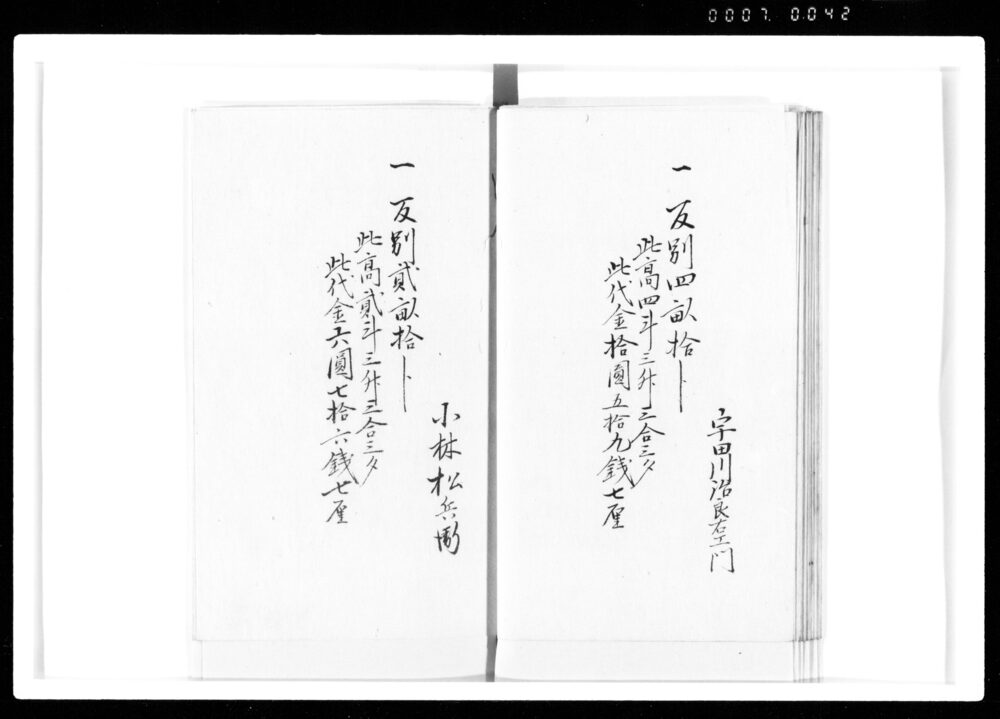 0007 0.042
宇田川治良右エ門
一 反別四畝拾卜
此高四斗三升三合三夕
此代金拾圓五拾九銭七厘
小林松兵衛
一 反別貳畝拾卜
此高貳斗三升三合三夕
此代金六圓七拾六銭七厘